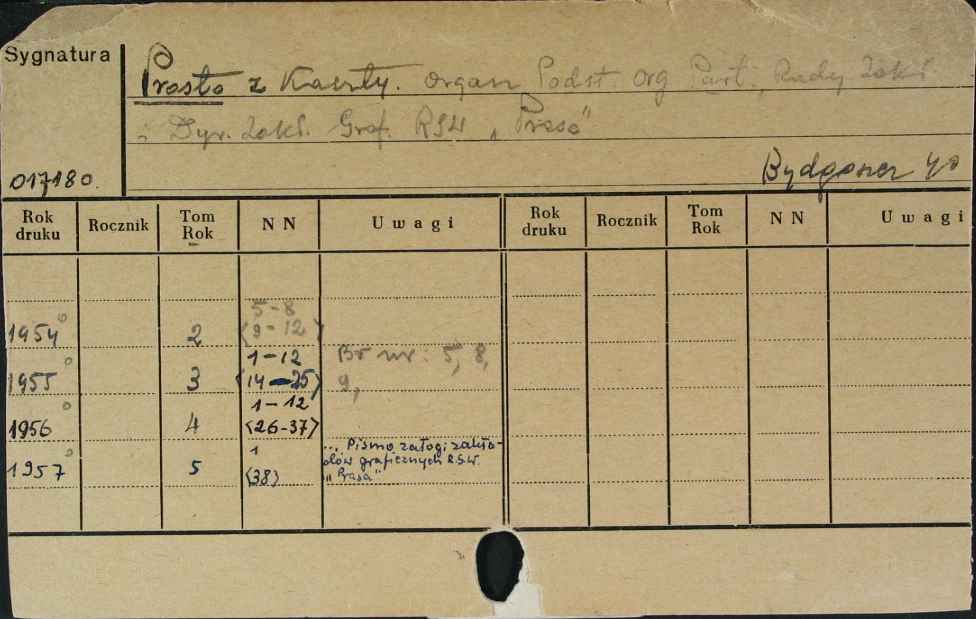 Sygnatura
Prosto z Kaszty. Organ Podst Org Part., Rady Zakł.
i Dyr. Zakł. Graf. RSW „Prasa"
017180.
Bydgoszcz
Rok druku Rocznik Tom Rok NN Uwagi Rok druku Rocznik Tom Rok NN Uwagi
5-8
1954° 2 (9-12)
1-12 Br nr: 5, 8,
1955° 3 (14-25) 9,
1-12
1956° 4 (26-37)
1 Pismo załogi zakła-
1957° 5 (38) dów graficznych R.S.W.
„Prasa"